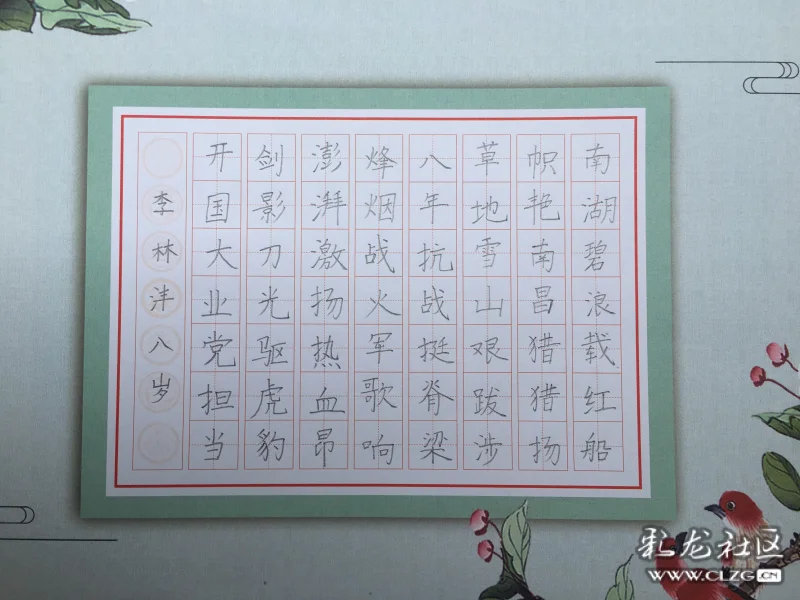 南湖碧浪载红船
帜艳南昌猎猎扬
草地雪山艰跋涉
八年抗战挺脊梁
烽烟战火军歌响
澎湃激扬热血昂
剑影刀光驱虎豹
开国大业党担当
李林洋八岁
私龙社区
www.CLZG.CN